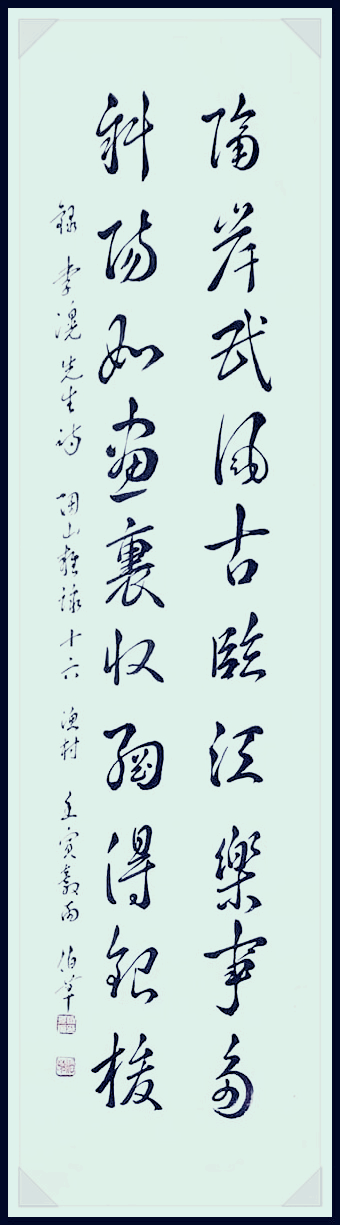 隔岸民風古臨江樂事多
斜陽如畫裏收網得銀梭
錄 李滉先生詩 陶山雜詠十六 漁村 壬寅穀雨